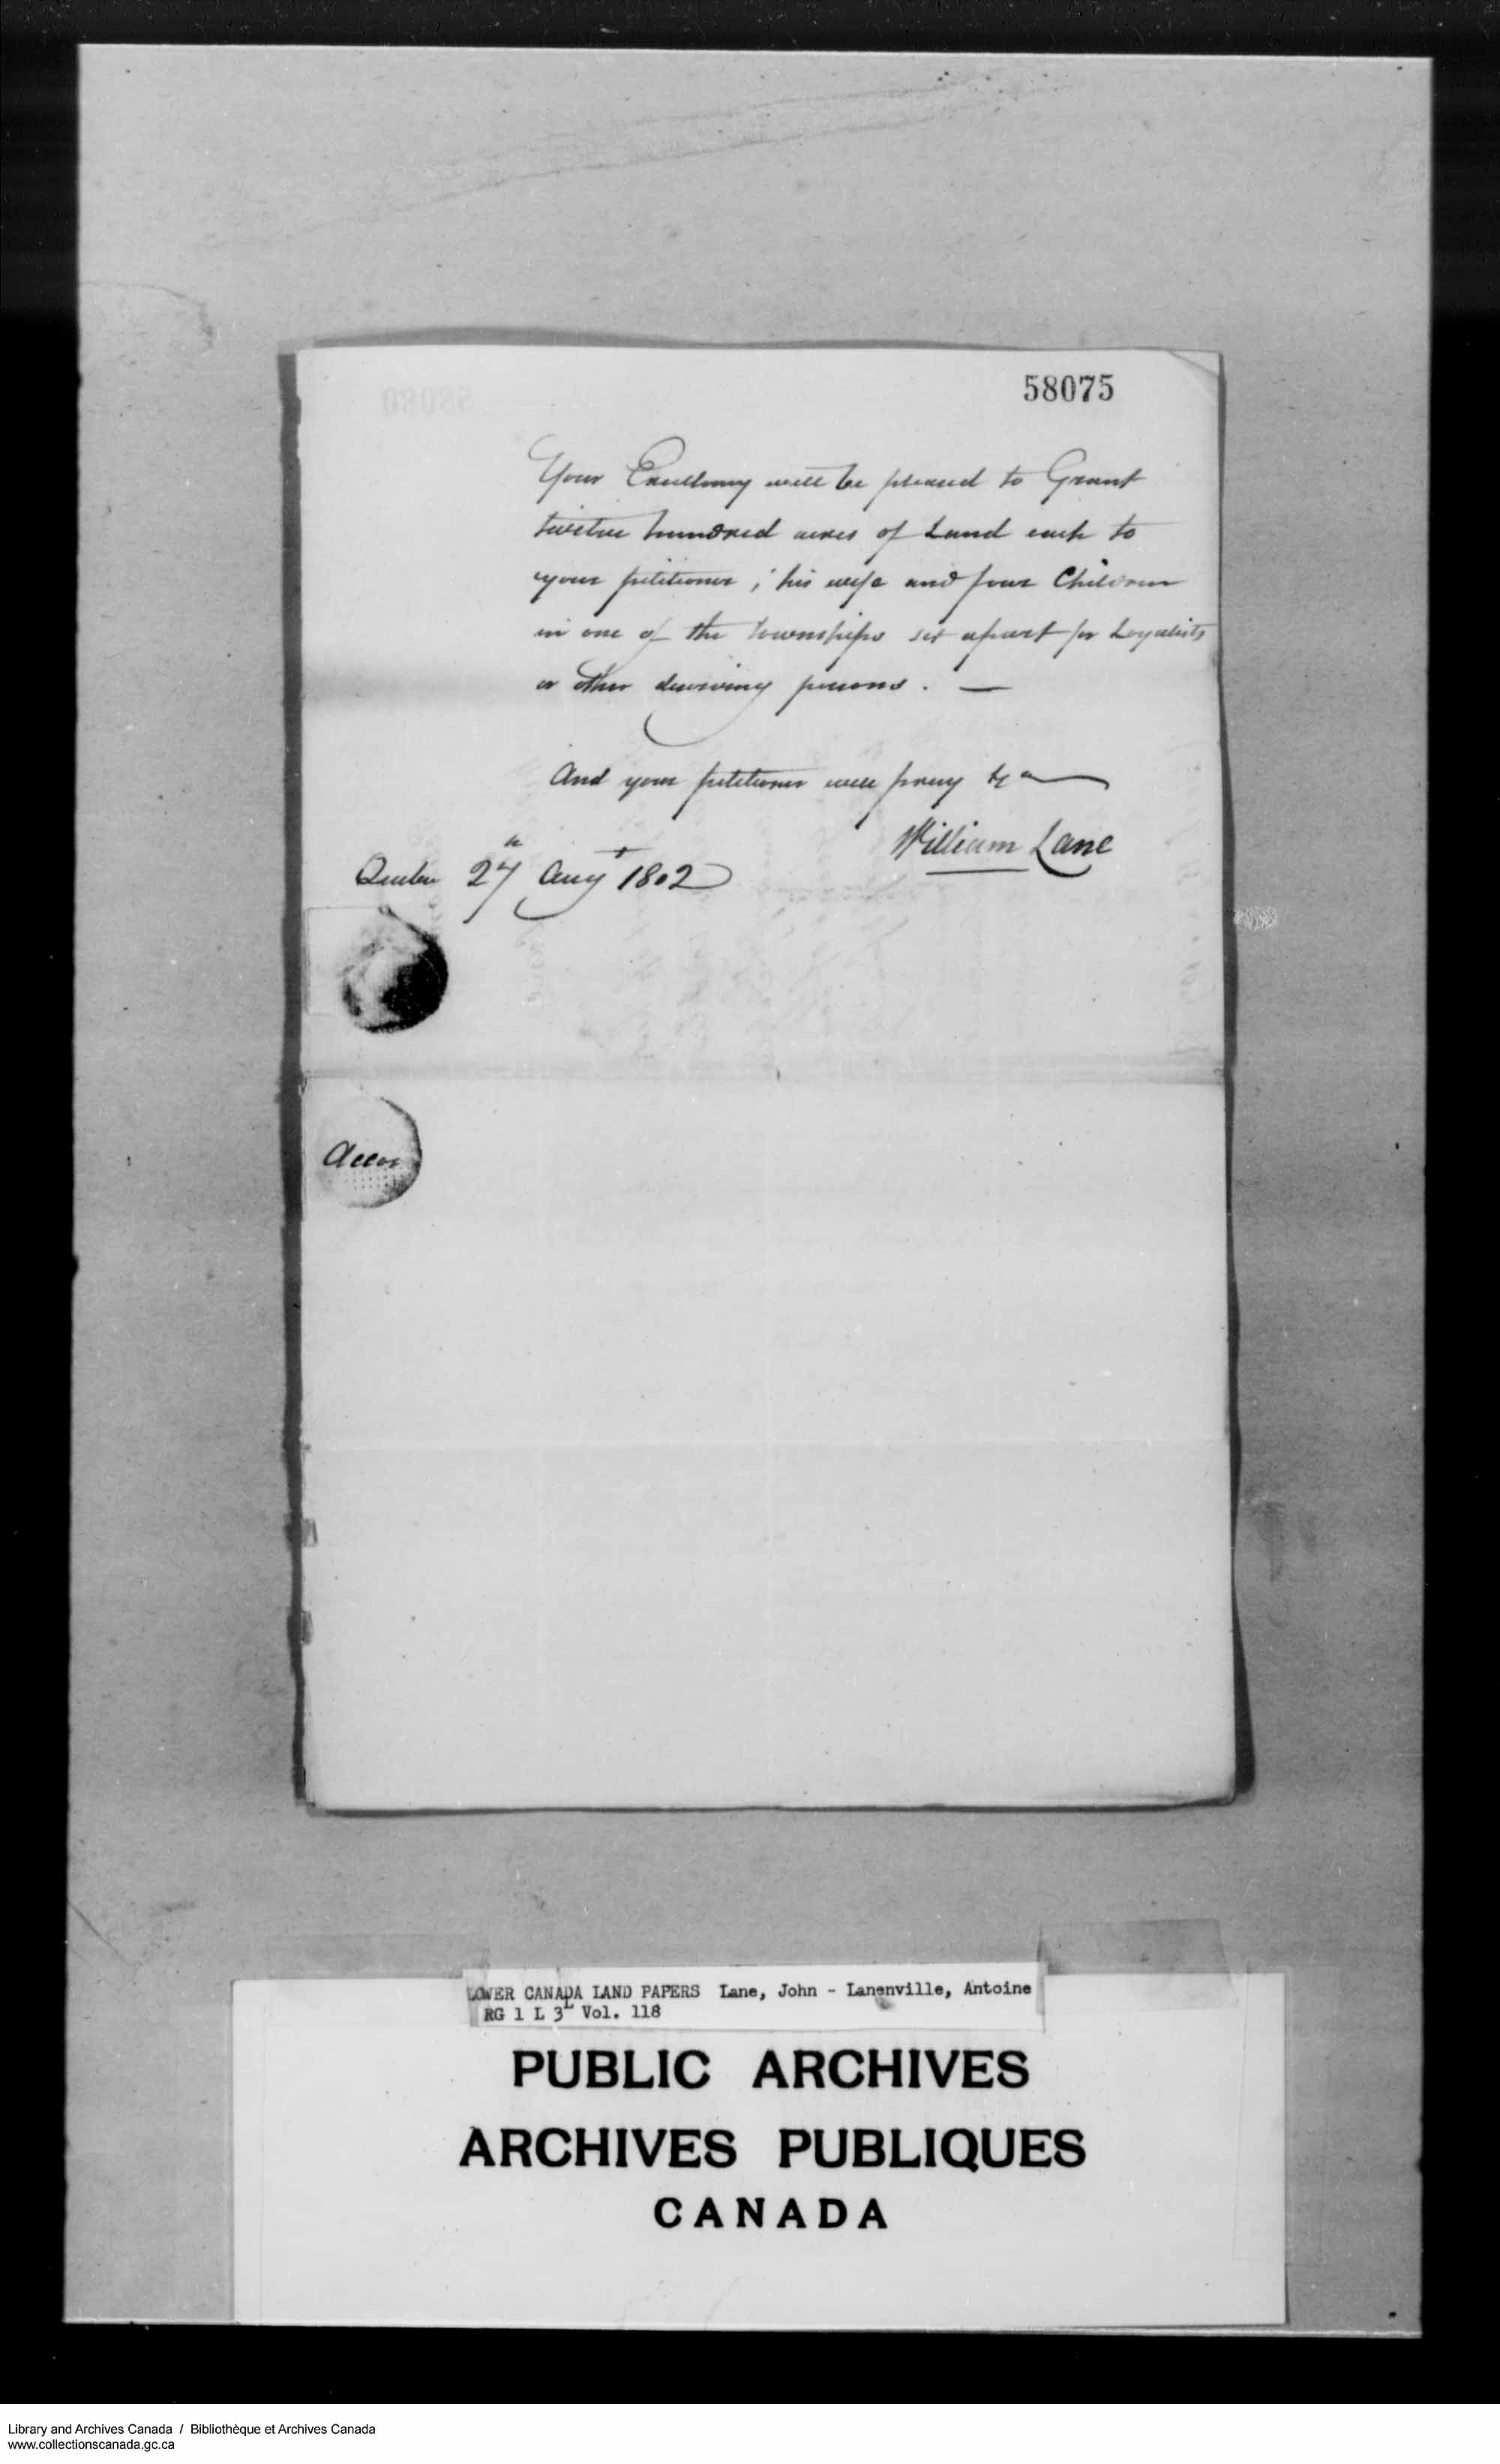 58075
Your Excellency will be pleased to Grant
twelve hundred acres of Land each to
your petitioner, his wife and four Children
in one of the townships set apart for Loyalists
or other deserving persons. —
And your petitioner will pray &c
William Lane
Quebec 27th Augt 1802
LOWER CANADA LAND PAPERS Lane, John - Lanenville, Antoine
RG 1 L 3L Vol. 118
PUBLIC ARCHIVES
ARCHIVES PUBLIQUES
CANADA
Library and Archives Canada / Bibliothèque et Archives Canada
www.collectionscanada.gc.ca